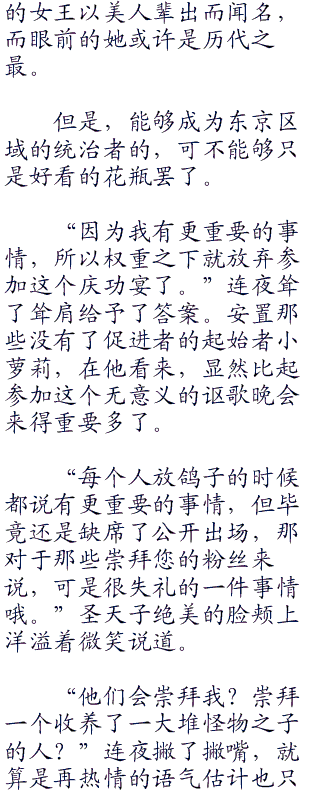 的女王以美人辈出而闻名，
而眼前的她或许是历代之
最。
但是，能够成为东京区
域的统治者的，可不能够只
是好看的花瓶罢了。
“因为我有更重要的事
情，所以权重之下就放弃参
加这个庆功宴了。”连夜耸
了耸肩给予了答案。安置那
些没有了促进者的起始者小
萝莉，在他看来，显然比起
参加这个无意义的讴歌晚会
来得重要多了。
“每个人放鸽子的时候
都说有更重要的事情，但毕
竟还是缺席了公开出场，那
对于那些崇拜您的粉丝来
说，可是很失礼的一件事情
哦。”圣天子绝美的脸颊上
洋溢着微笑说道。
“他们会崇拜我？崇拜
一个收养了一大堆怪物之子
的人？”连夜撇了撇嘴，就
算是再热情的语气估计也只